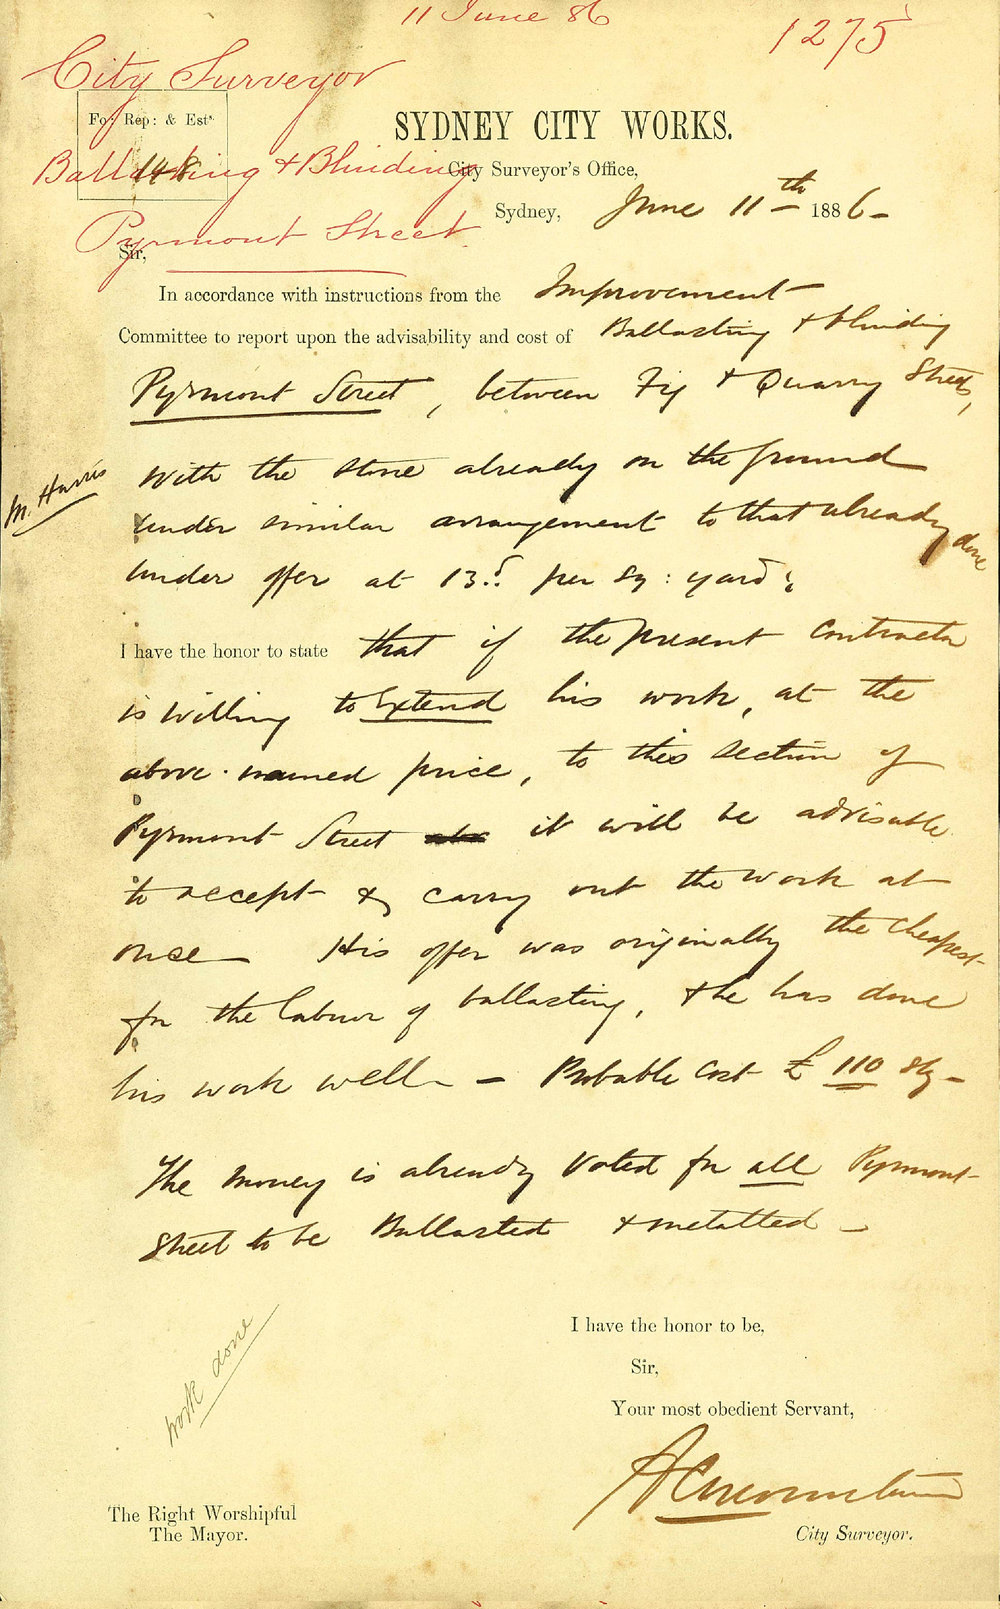 11 June 86
1275
City Surveyor
For Rep: & Ests
148
Ballasting & Blinding
Pyrmont Street
SYDNEY CITY WORKS.
City Surveyor's Office,
Sydney, June 11th 1886-
Sir,
In accordance with instructions from the Improvement
Committee to report upon the advisability and cost of Ballasting & blinding
Pyrmont Street, between Fig & Quarry Streets,
M. Harris
With the stone already on the ground
under similar arrangement to that already done
under offer at 13d per sq: yard;
I have the honor to state that if the present Contractor
is willing to Extend his work, at the
above-named price, to this section of
Pyrmont Street it will be advisable
to accept & carry out the work at
once His offer was originally the cheapest
for the labour of ballasting, & he has done
his work well - Probable Cost £110 Stg -
The money is already Voted for all Pyrmont
Street to be Ballasted & metalled -
work done
I have the honor to be,
Sir,
Your most obedient Servant,
City Surveyor.
The Right Worshipful
The Mayor.